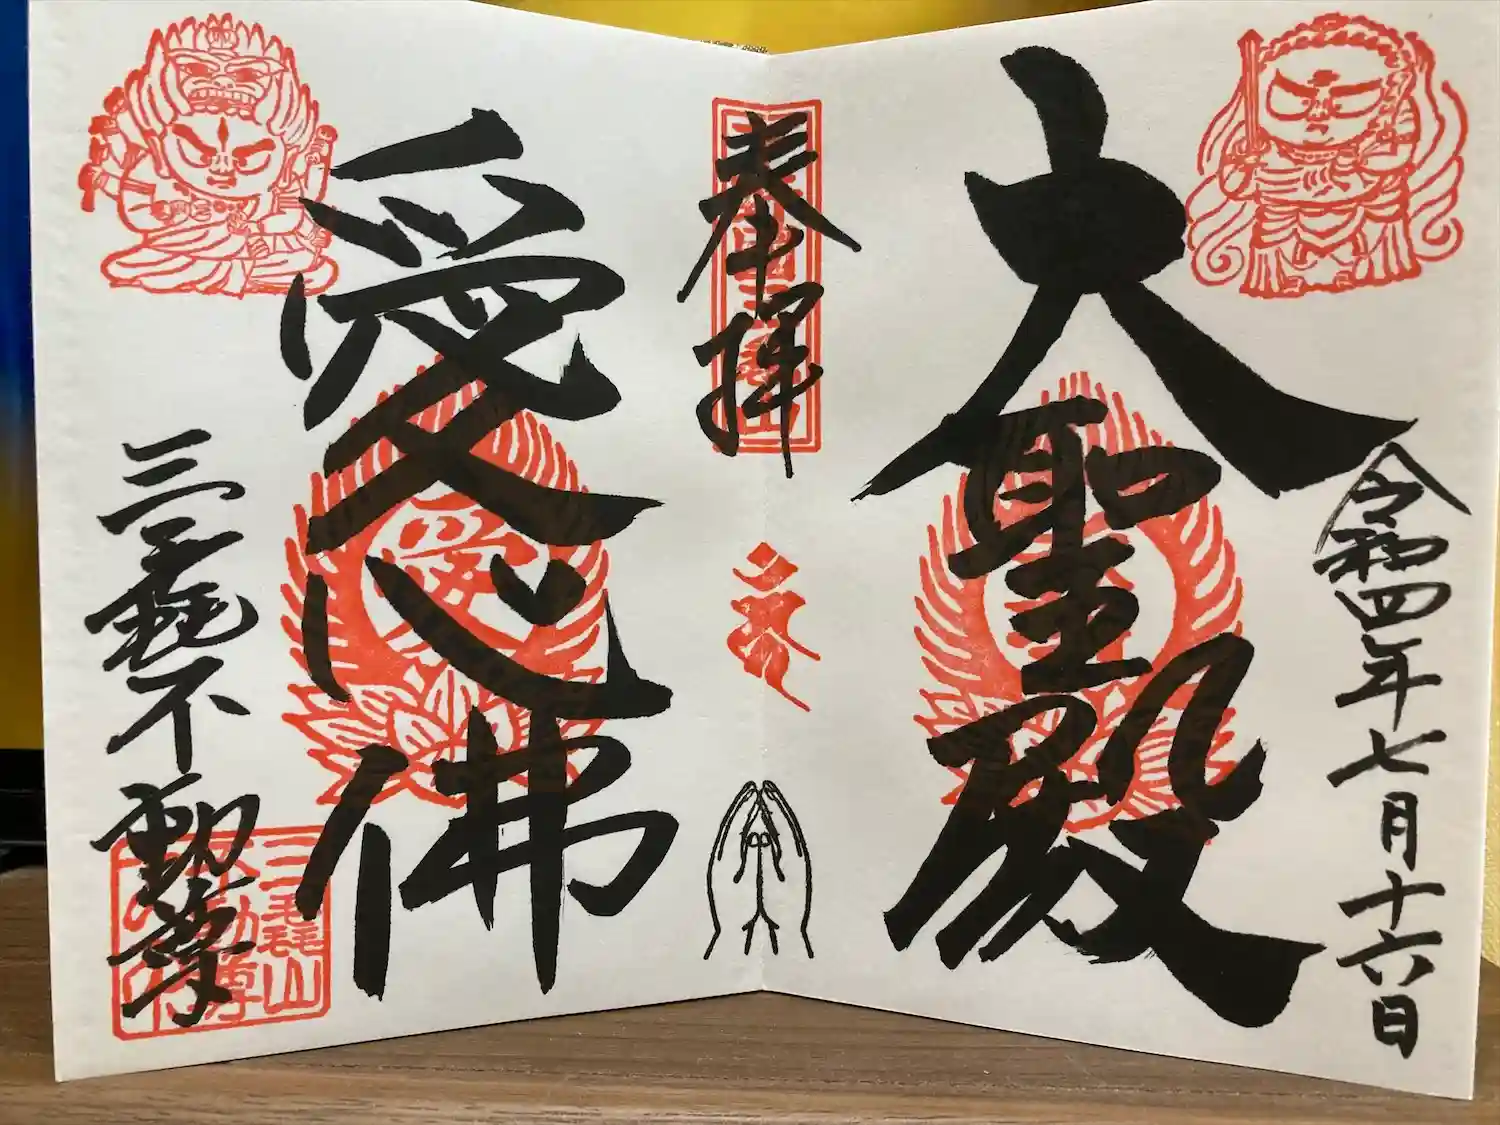 令和四年七月十六日
大聖殿
奉拝
愛心佛
愛
三毳不動尊
三毳山
不動尊
之印